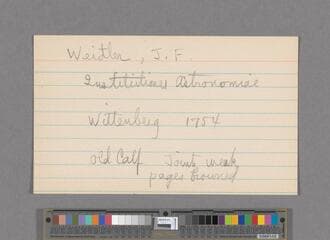 Weidler, J. F.
Institutiones Astronomiae
Wittenberg 1754
Old Calf Joints weak,
pages browned